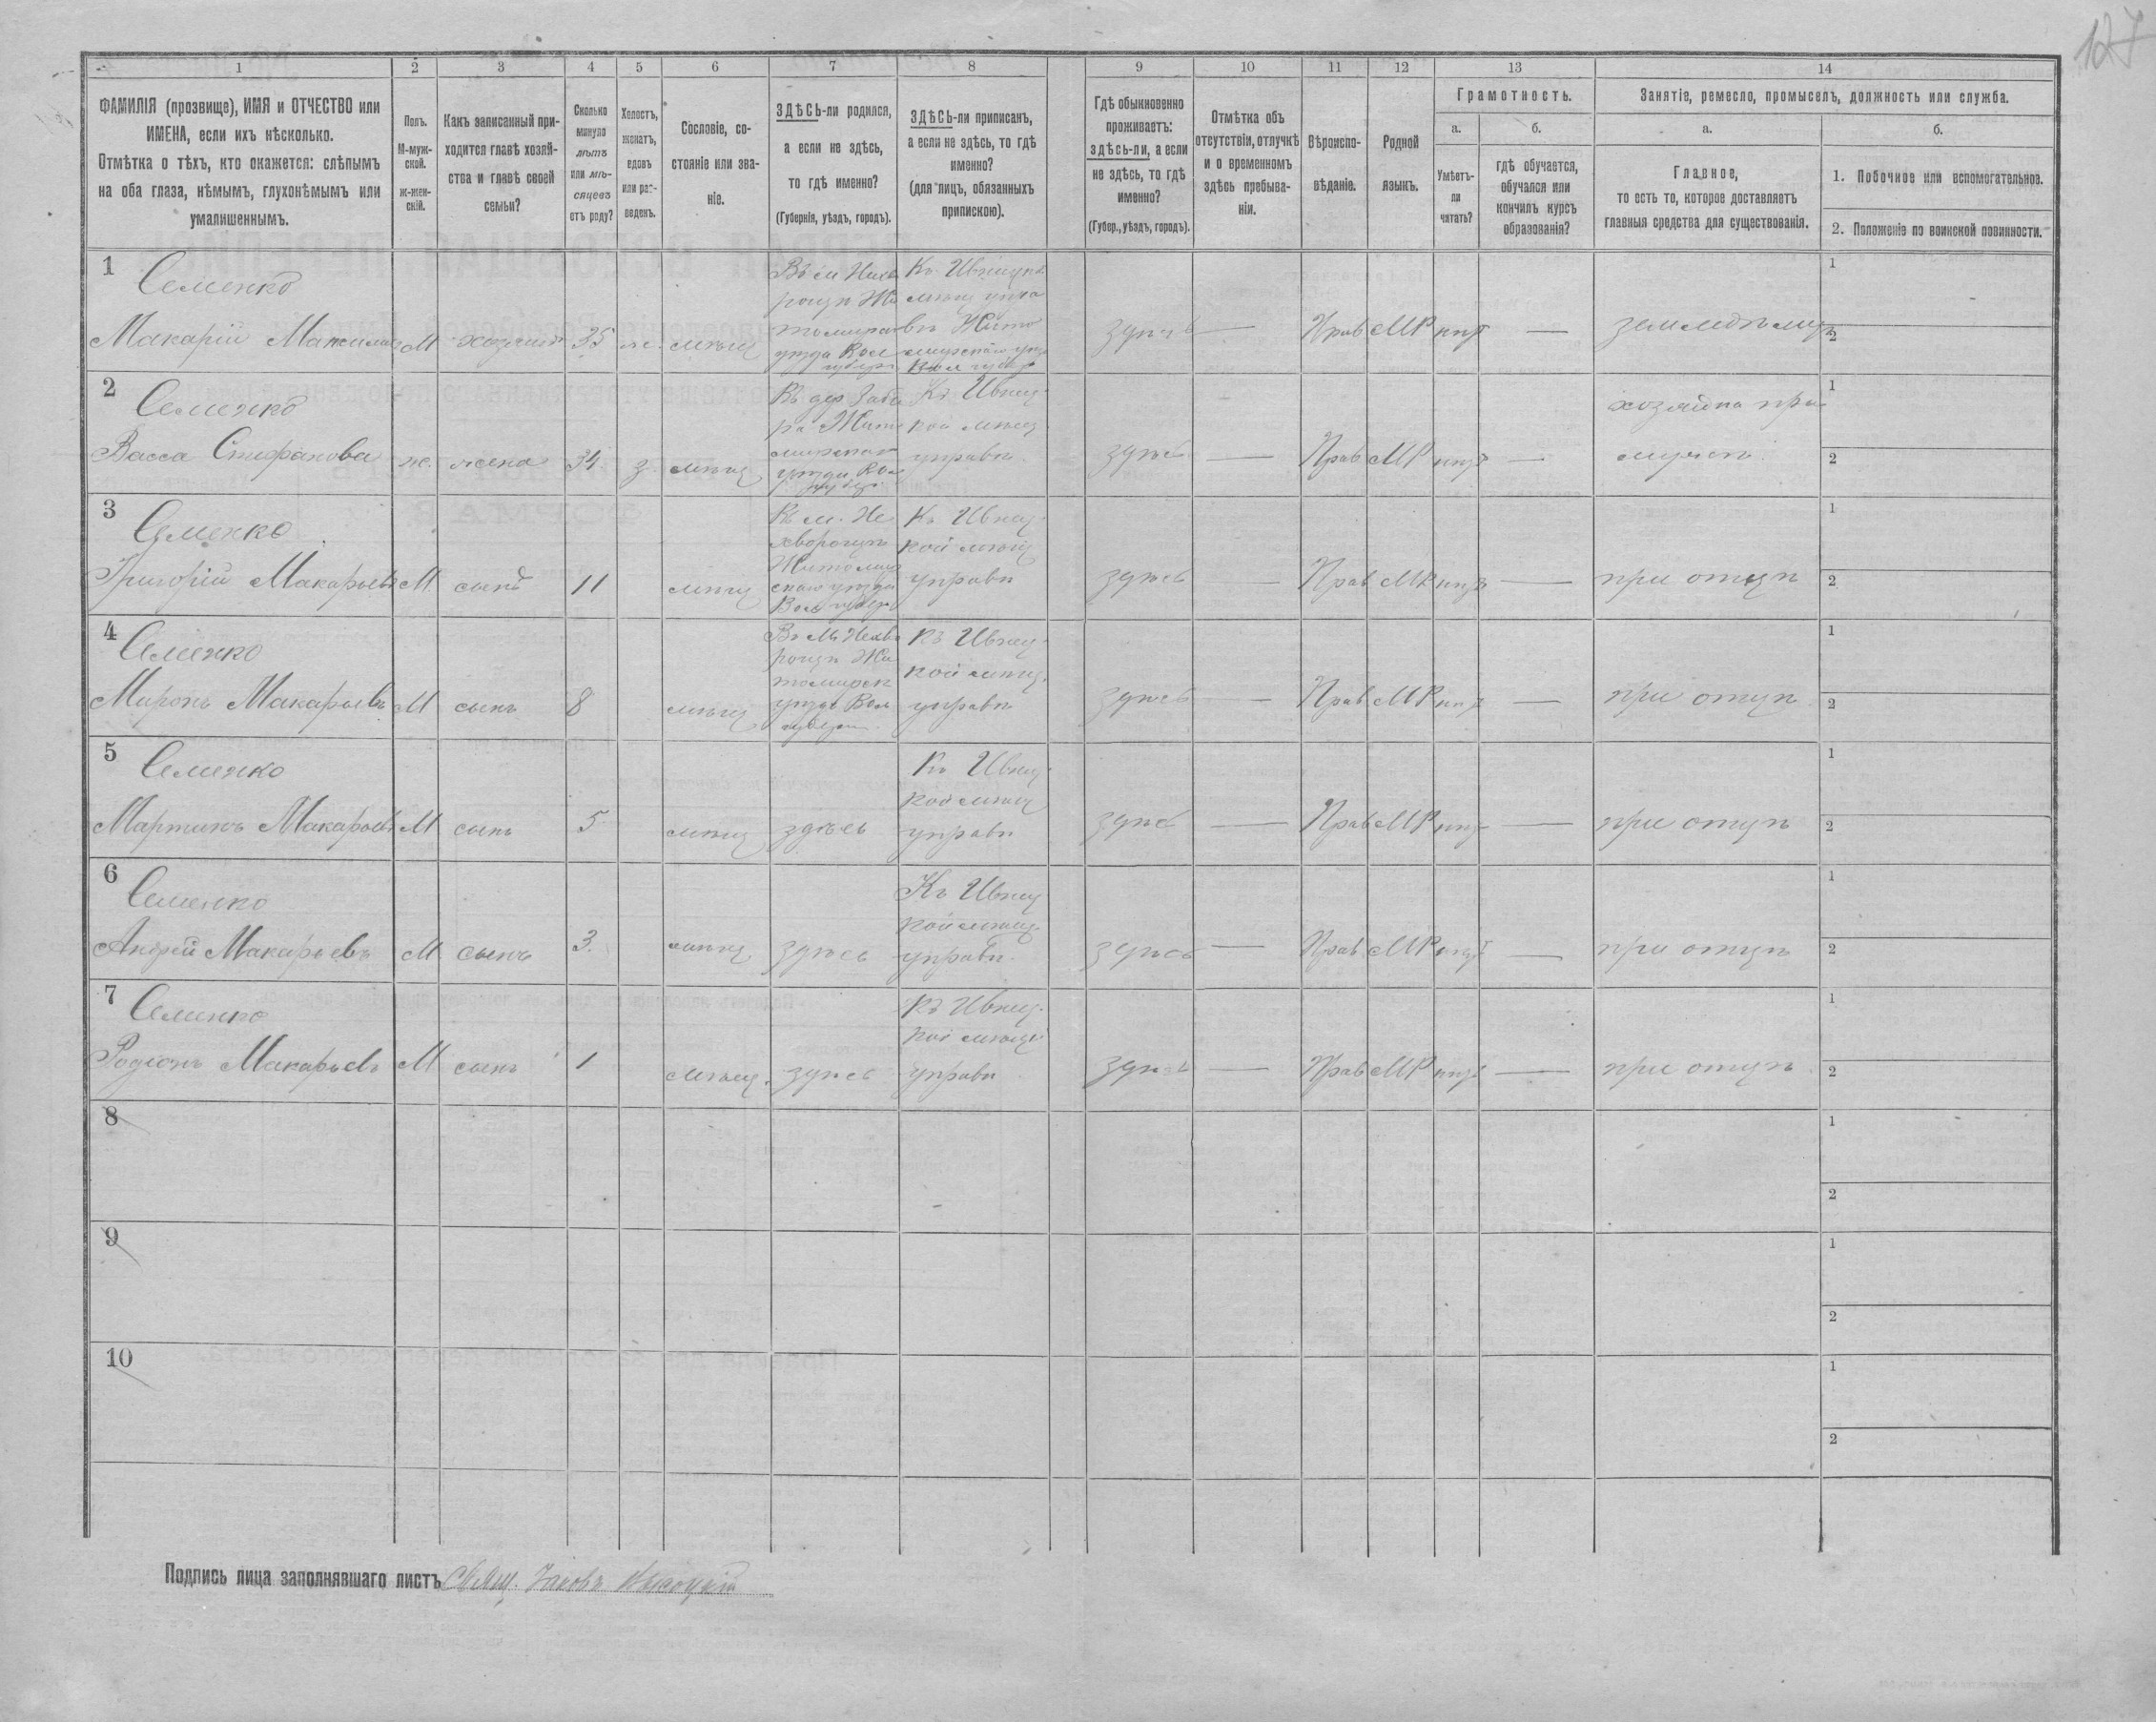 127
1 2 3 4 5 6 7 8 9 10 11 12 13 14
ФАМИЛІЯ (прозвище), ИМЯ и ОТЧЕСТВО или
ИМЕНА, если ихъ нѣсколько.
Отмѣтка о тѣхъ, кто окажется: слѣпымъ
на оба глаза, нѣмымъ, глухонѣмымъ или
умалишеннымъ.
Полъ.
М-муж-
ской.
ж-жен-
скій.
Какъ записанный при-
ходится главѣ хозяй-
ства и главѣ своей
семьи?
Сколько
минуло
лѣтъ
или мѣ-
сяцевъ
отъ роду?
Холостъ,
женатъ,
вдовъ
или раз-
веденъ.
Сословіе, со-
стояніе или зва-
ніе.
ЗДѢСЬ-ли родился,
а если не здѣсь,
то гдѣ именно?
(Губернія, уѣздъ, городъ).
ЗДѢСЬ-ли приписан,
а если не здѣсь, то гдѣ
именно?
(для лицъ, обязанныхъ
припискою).
Гдѣ обыкновенно
проживаетъ:
здѣсь-ли, а если
не здѣсь, то гдѣ
именно?
(Губер., уѣздъ, городъ).
Отмѣтка объ
отсутствіи, отлучкѣ
и о временномъ
здѣсь пребыва-
ніи.
Вѣроиспо-
вѣданіе.
Родной
языкъ.
Грамотность.
а.
Умѣетъ-
ли
читать?
б.
гдѣ обучается,
обучался или
кончилъ курсъ
образованія?
Занятіе, ремесло, промыселъ, должность или служба.
а.
Главное,
то есть то, которое доставляетъ
главныя средства для существованія.
б.
1. Побочное или вспомогательное.
2. Положеніе по воинской повинности.
1 Семенко
Макарій М хозяинъ 35 ж. мѣщ здѣсь — Прав МР нѣт — земледѣлец
1
2
2 Семенко
Васса Стефанова ж. жена 34 з. мѣщ Къ Ивниц-
кой мѣщ
управѣ здѣсь — Прав МР нѣт — хозяйка при
1
2
3 Семенко
Григорій Макарьевъ М сынъ 11 мѣщ Къ Ивниц-
кой мѣщ
управѣ здѣсь — Прав МР нѣтъ — при отцѣ
1
2
4 Семенко
Миронъ Макарьевъ М сынъ 8 мѣщ Къ Ивниц-
кой мѣщ.
управѣ здѣсь — Прав МР нѣт — при отцѣ
1
2
5 Семенко
Мартинъ Макарьевъ М сынъ 5 мѣщ здѣсь Къ Ивниц-
кой мѣщ
управѣ здѣсь — Прав МР нѣт — при отцѣ
1
2
6 Семенко
Андрей Макарьевъ М сынъ 3. мѣщ здѣсь Къ Ивниц
кой мѣщ.
управѣ. здѣсь — Прав МР нѣт — при отцѣ
1
2
7 Семенко
Родіонъ Макарьевъ М сынъ 1 мѣщ. здѣсь Къ Ивниц-
кой мѣщ
управѣ здѣсь — Прав МР нѣт — при отцѣ
1
2
8
1
2
9
1
2
10
1
2
Подпись лица заполнявшаго листъ Свящ. Іаковъ